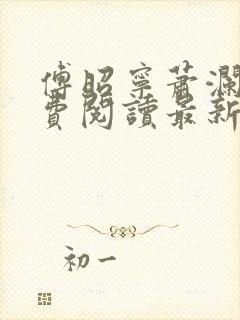 傅昭寧蕭瀾
費閱讀最新
初一